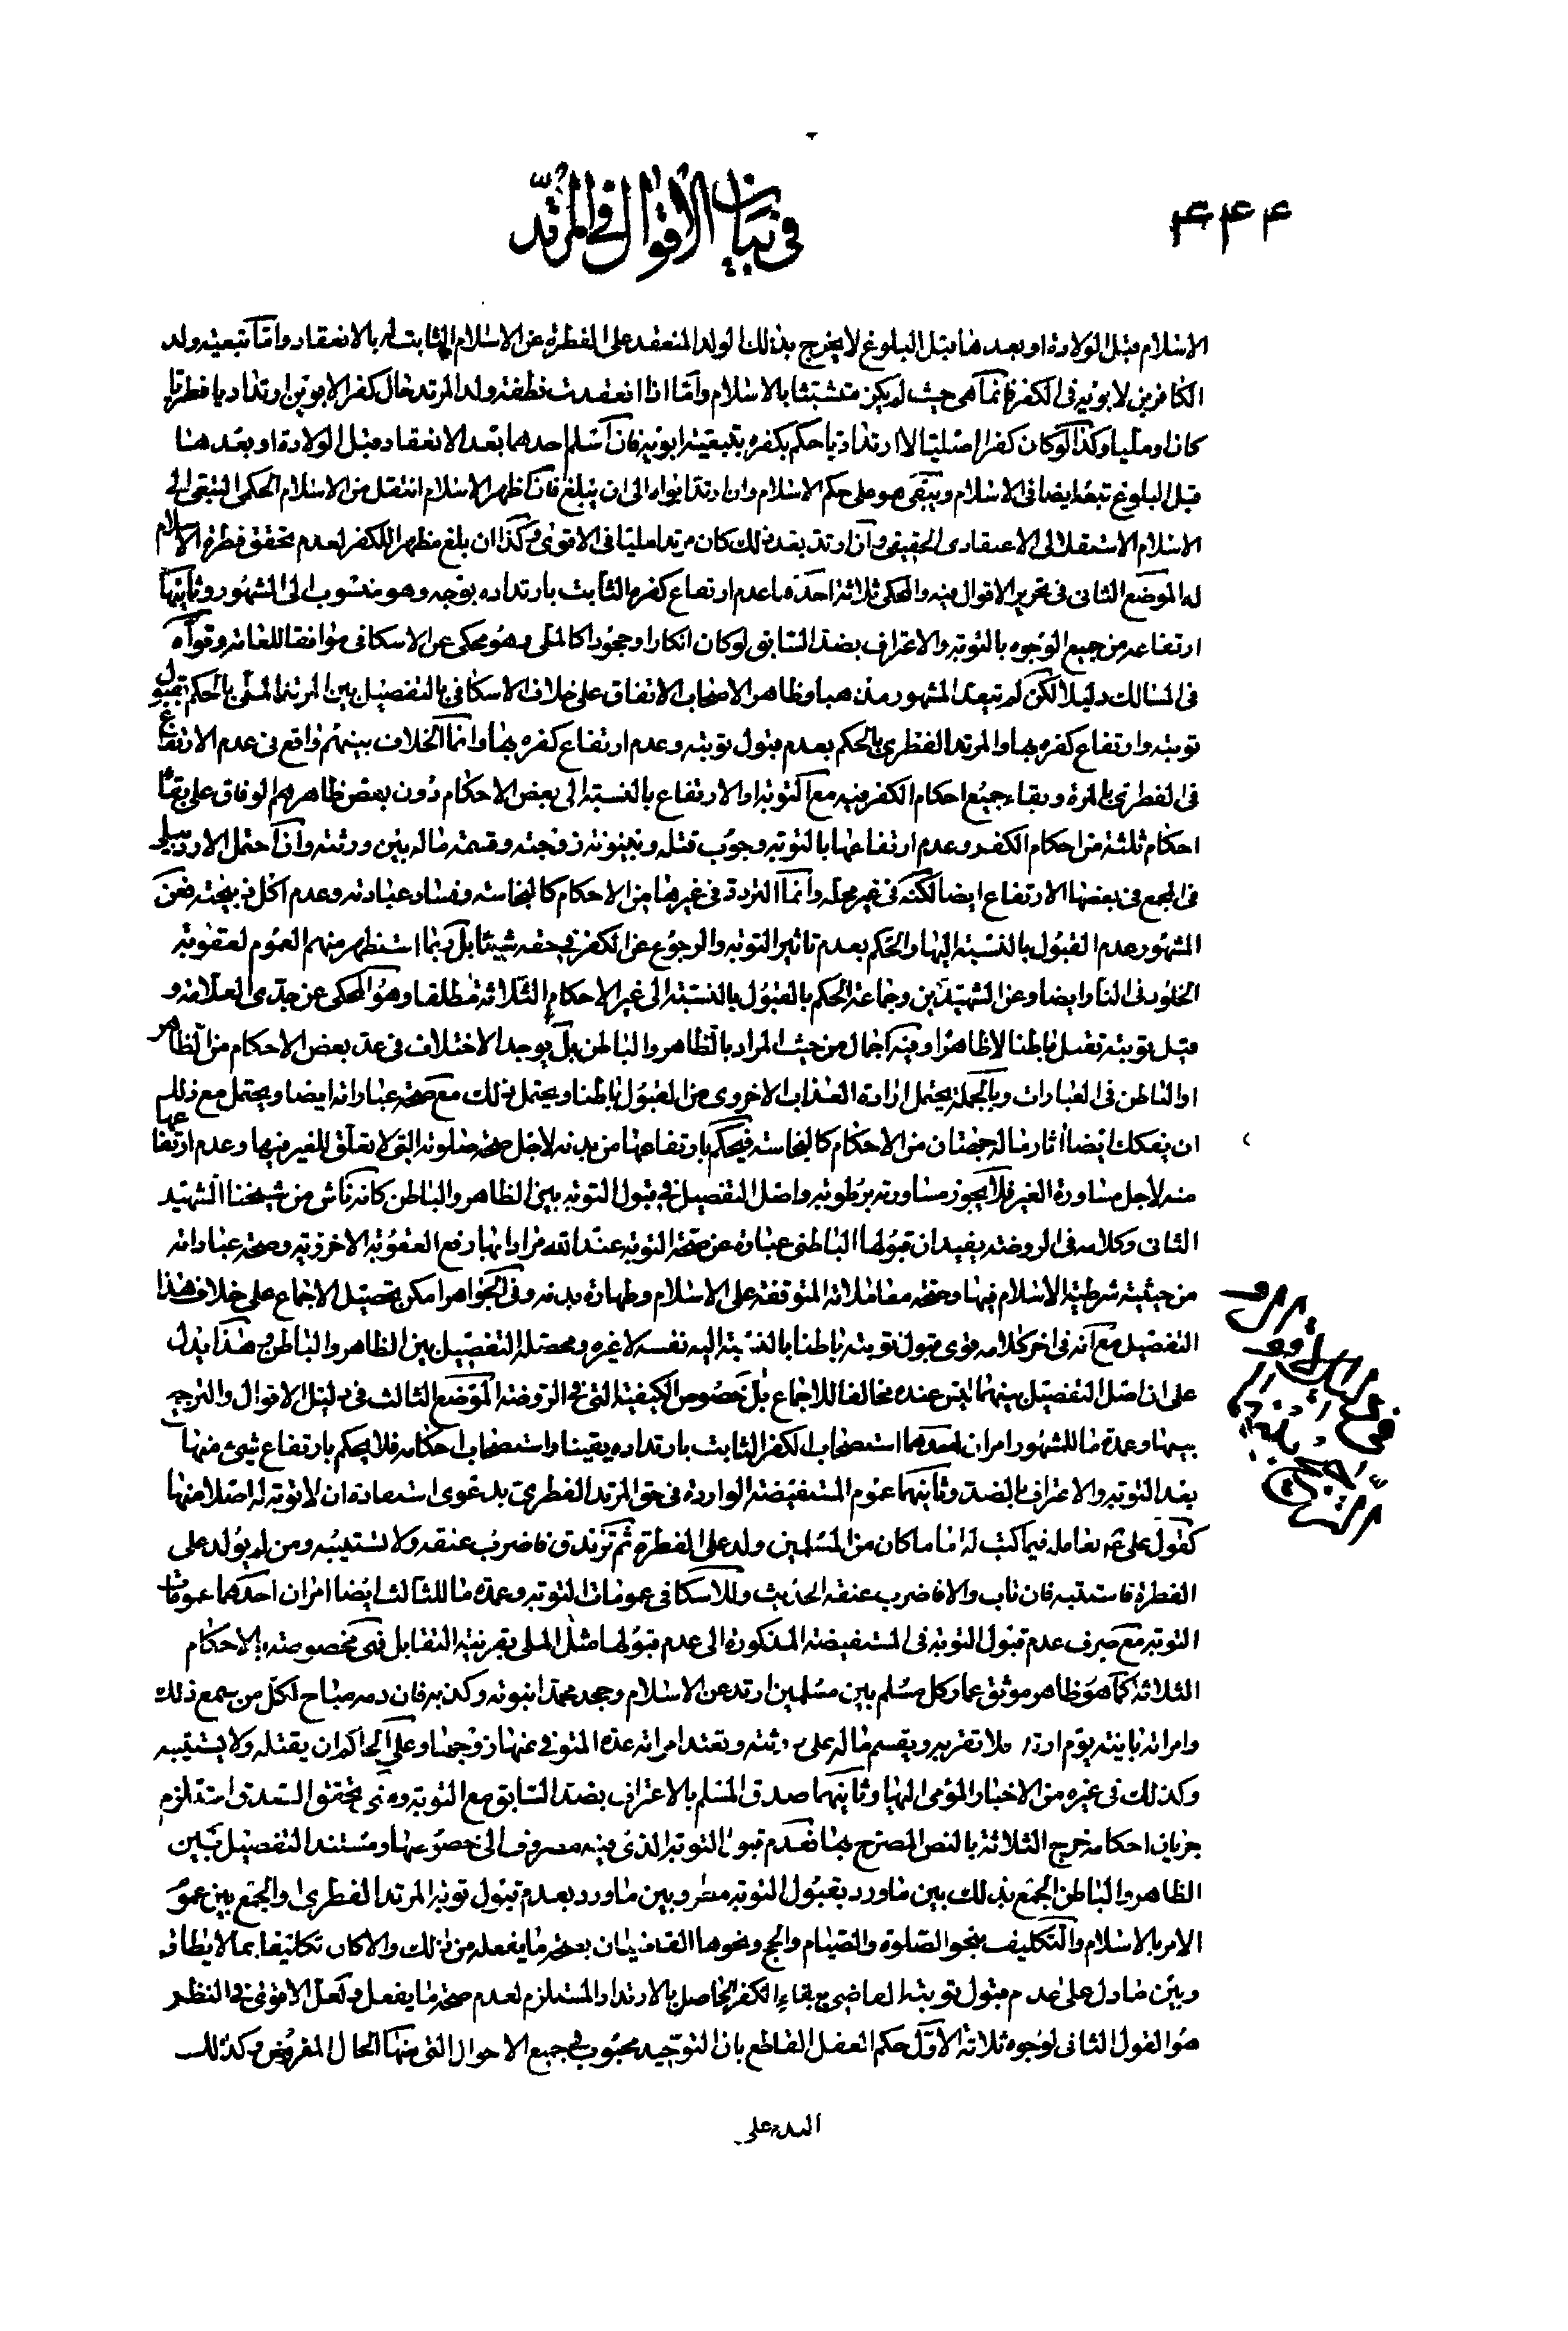 ۴۴۴
في بيان الأقوال في المرتد
الاسلام قبل الولادة او بعدها قبل البلوغ لا يخرج بذلك الولد المنعقد على الفطرة عن الاسلام الثابت له بالانعقاد واما تبعية ولد
الكافرين لابويه فى الكفر فانما هى حيث لم يكن متشبثا بالاسلام وامّا اذا انعقدت نطفة ولد المرتد حال كفر الابوين ارتداديا فطريا
كان او مليا وكذا لو كان كفرا اصليا لا ارتداديا حكم بكفره بتبعية ابويه فان اسلم احدهما بعد الانعقاد قبل الولادة او بعدها
قبل البلوغ تبعه ايضا فى الاسلام ويبقى هو على حكم الاسلام وان ارتد ابواه الى ان يبلغ فان اظهر الاسلام انتقل من الاسلام الحكمى التبعى الى
الاسلام الاستقلالى الاعتقادى الحقيقى وان ارتد بعد ذلك كان مرتدا مليا فى الاقوى وكذا ان بلغ مظهرا للكفر لعدم تحقق فطرة الاسلام
له الموضع الثانى فى تحرير الاقوال فيه والمحكى ثلاثة احدها عدم ارتفاع كفره الثابت بارتداده بتوجه وهو منسوب الى المشهور وثانيها
ارتفاعه من جميع الوجوه بالتوبة والاعتراف بضد السابق لو كان انكارا وجحودا كالملى وهو محكى عن الاسكافى موافقا للعامة وقواه
فى المسالك دليلا لكن لم يتعد المشهور مذهبا وظاهر الاصحاب الاتفاق على خلاف الاسكافى بالتفصيل بين المرتد الملى بالحكم بقبول
توبته وارتفاع كفره بها والمرتد الفطرى بالحكم بعدم قبول توبته وعدم ارتفاع كفره بها وانما الخلاف بينهم واقع فى عدم الارتفاع
فى الفطرى بالمرة وبقاء جميع احكام الكفر فيه مع التوبة او الارتفاع بالنسبة الى بعض الاحكام دون بعض ظاهرهم الوفاق على بقاء
احكام ثلثة من احكام الكفر وعدم ارتفاعها بالتوبة وجوب قتله وبينونة زوجته وقسمة ماله بين ورثته وان احتمل الاردبيلى
فى المجمع فى بعضها الارتفاع ايضا لكنه فى غير محله وانما التردد فى غيرها من الاحكام كالنجاسة وفساد عبادته وعدم اكل ذبيحته فعن
المشهور عدم القبول بالنسبة اليها والحكم بعدم تاثير التوبة والرجوع عن الكفر فى حقه شيئا بل ربما استظهر منهم العموم لعقوبة
الخلود فى النار ايضا وعن الشهيدين وجماعة الحكم بالقبول بالنسبة الى غير الاحكام الثلاثة مطلقا وهو المحكى عن جدى العلامة و
قيل توبته تقبل باطنا لا ظاهرا وفيه اجمال من حيث المراد بالظاهر والباطن بل يوجد الاختلاف فى عد بعض الاحكام من الظاهر
او الباطن فى العبارات وبالجملة يحتمل ارادة العذاب الاخروى من القبول باطنا ويحتمل ذلك مع صحة عباداته ايضا ويحتمل مع ذلك
ان يفكك ايضا آثار ماله جهتان من الاحكام كالنجاسة فيحكم بارتفاعها من بدنه لاجل صحة صلوته التى لا تعلق للغير فيها وعدم ارتفاعها
منه لاجل مساورة الغير فلا يجوز مساورته برطوبة واصل التفصيل فى قبول التوبة بين الظاهر والباطن كانه ناش من شيخنا الشهيد
الثانى وكلامه فى الروضة يفيد ان قبولها الباطنى عبارة عن صحة التوبة عند الله مرادا بها رفع العقوبة الاخروية وصحة عباداته
من حيثية شرطية الاسلام فيها وصحة معاملاته المتوقفة على الاسلام وطهارة بدنه وفى الجواهر امكن تحصيل الاجماع على خلاف هذا
التفصيل مع انه فى اخر كلامه قوى قبول توبته باطنا بالنسبة اليه نفسه لا غيره ومحصله التفصيل بين الظاهر والباطن وهذا يدل
على ان اصل التفصيل بينهما ليس عنده مخالفا للاجماع بل خصوص الكيفية التى فى الروضة الموضع الثالث فى دليل الاقوال والترجيح
بينها وعمدة ما للمشهور امران احدهما استصحاب الكفر الثابت بارتداده يقينا واستصحاب احكامه فلا يحكم بارتفاع شىء منها
بعد التوبة والاعتراف بالضد وثانيهما عموم المستفيضة الواردة فى حق المرتد الفطرى بدعوى استفادة ان لا توبة له اصلا منها
كقول على لعامله فيما كتب له اما ما كان من المسلمين ولد على الفطرة ثم تزندق فاضرب عنقه ولا تستتيبه ومن لم يولد على
الفطرة فاستتبه فان تاب والا فاضرب عنقه الحديث وللاسكافى عمومات التوبة وعمدة ما للثالث ايضا امران احدهما عمومات
التوبة مع صرف عدم قبول التوبة فى المستفيضة المذكورة الى عدم قبولها مثل الملى بقرينة التقابل فهى مخصوصة بالاحكام
الثلاثة كما هو ظاهر موثق عمار كل مسلم بين مسلمين ارتد عن الاسلام وجحد محمدا نبوته وكذبه فان دمه مباح لكل من سمع ذلك
وامراته باينة يوم ارتد فلا تقربه ويقسم ماله على ورثته وتعتد امراته عدة المتوفى عنها زوجها وعلى الحاكم ان يقتله ولا يستتيبه
وكذلك فى غيره من الاخبار المؤمى اليها وثانيهما صدق المسلم بالاعتراف بضد السابق مع التوبة ومتى تحقق الصدق استلزم
جريان احكامه خرج الثلاثة بالنص المصرح بها فعدم قبول التوبة الذى فيه مصروف الى خصوصها ومستند التفصيل بين
الظاهر والباطن الجمع بذلك بين ما ورد بقبول التوبة وبين ما ورد بعدم قبول توبة المرتد الفطرى والجمع بين عموم
الامر بالاسلام والتكليف بنحو الصلوة والصيام والحج ونحوها القاضيان بصحة ما يفعله من ذلك والا كان تكليفا بما لا يطاق
وبين ما دل على عدم قبول توبته القاضى ببقاء الكفر الحاصل بالارتداد المستلزم لعدم صحة ما يفعل ولعل الاقوى فى النظر
هو القول الثانى لوجوه ثلاثة الاول حكم العقل القاطع بان التوحيد محبوب فى جميع الاحوال التى منها الحال المفروض وكذلك
فى دليل الاقوال والترجيح بينها